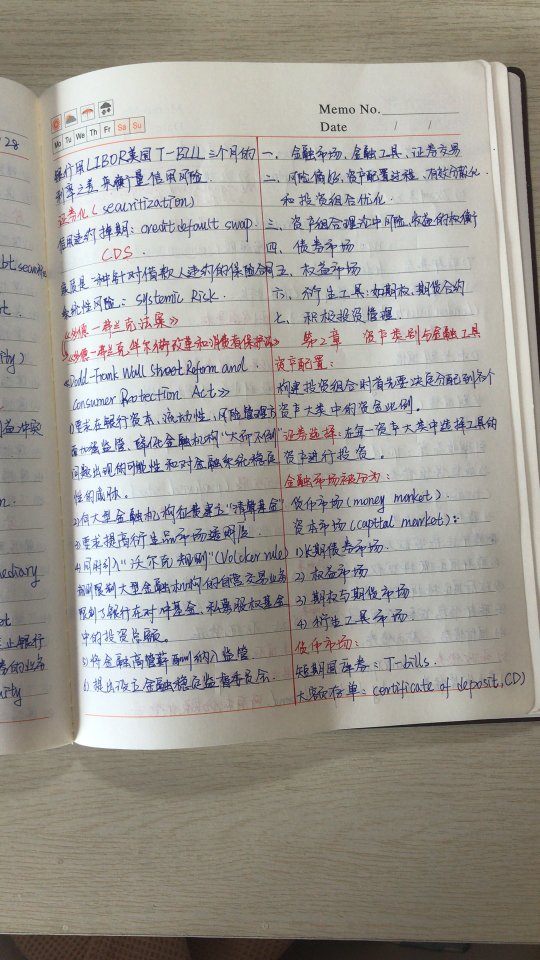 28
bt.securities
t.
ity)
n.
ediary
st
止银行
券的业务
urity
Mo Tu We Th Fr Sa Su
Memo No.
Date / /
银行用LIBOR美国T-Bill三个月的
利率之差,来衡量信用风险.
证券化(securitization)
信用违约掉期:credit default swap.
CDS.
实质是一种针对借款人违约的保险合同
系统性风险:systemic Risk.
《多德-弗兰克法案》
《多德-弗兰克华尔街改革和消费者保护法》
《Dodd-Frank Wall Street Reform and
Consumer Protection Act》
1)要求在银行资本、流动性、风险管理方
面加强监管、降低金融机构"大而不倒"
问题出现的可能性和对金融系统稳定
性的威胁。
2)向大型金融机构征费建立"清算基金"
3)要求提高衍生品市场透明度
4)同时引入"沃尔克规则"(Volcker rule)
规则限制大型金融机构的自营交易业务
限制了银行在对冲基金、私募股权基金
中的投资总额。
5)将金融高管薪酬纳入监管
6)提出设立金融稳定监督委员会.
一、金融市场、金融工具、证券交易
二、风险偏好,资产配置过程、有效分散化.
和投资组合优化.
三、资产组合理论中风险、收益的权衡
四、债券市场
五、权益市场
六、衍生工具:如期权、期货合约
七、积极投资管理.
第2章 资产类别与金融工具
资产配置:
构建投资组合时首先要决定分配到各个
资产大类中的资金比例。
证券选择:在每一资产大类中选择工具的
资产进行投资。
金融市场被分为:
货币市场(money market).
资本市场(capital market):
1)长期债券市场.
2)权益市场
3)期权与期货市场
4)衍生工具市场.
货币市场:
短期国库券:T-bills.
大额存单:certificate of deposit,CD)